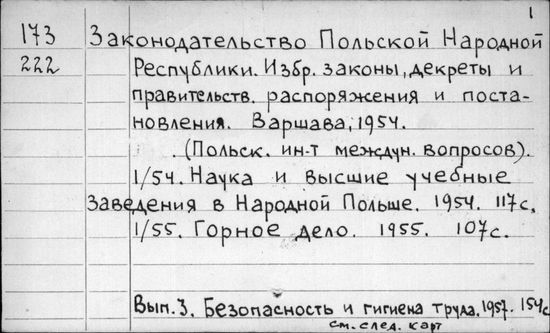 1
173 Законодательство Польской Народной
222 Республики. Избр. законы, декреты и
правительств. распоряжения и поста-
новления. Варшава, 1954.
(Польск. ин-т междун. вопросов).
1/54. Наука и высшие учебные
Заведения в Народной Польше. 1954. 117с.
1/55. Горное дело. 1955. 107с.
Вып. 3. Безопасность и гигиена труда. 1957. 154с.
см. след. карт